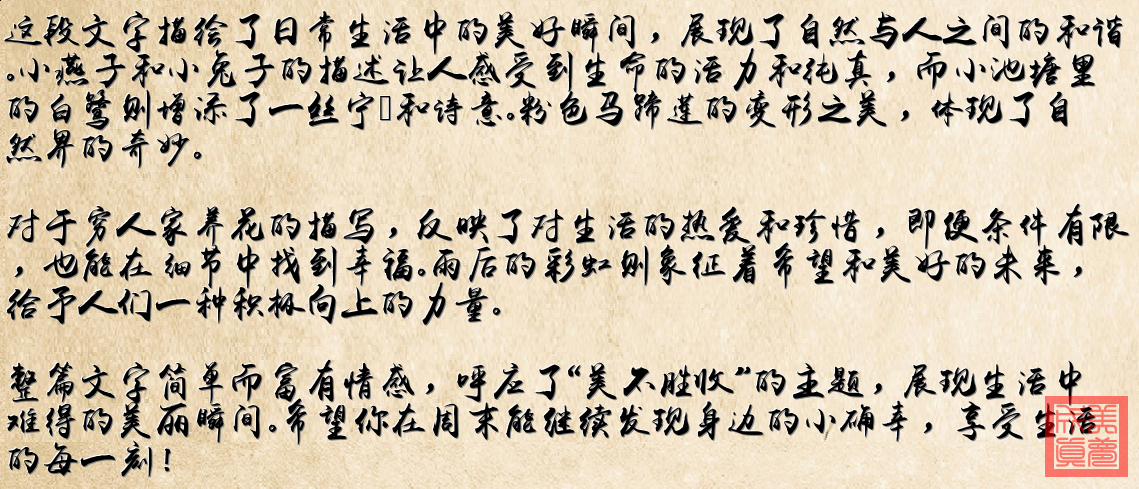 这段文字描绘了日常生活中的美好瞬间，展现了自然与人之间的和谐
。小燕子和小兔子的描述让人感受到生命的活力和纯真，而小池塘里
的白鹭则增添了一丝宁和诗意。粉色马蹄莲的变形之美，体现了自
然界的奇妙。
对于穷人家养花的描写，反映了对生活的热爱和珍惜，即便条件有限
，也能在细节中找到幸福。雨后的彩虹则象征着希望和美好的未来，
给予人们一种积极向上的力量。
整篇文字简单而富有情感，呼应了“美不胜收”的主题，展现生活中
难得的美丽瞬间。希望你在周末能继续发现身边的小确幸，享受生活
的每一刻！
美梦
成真